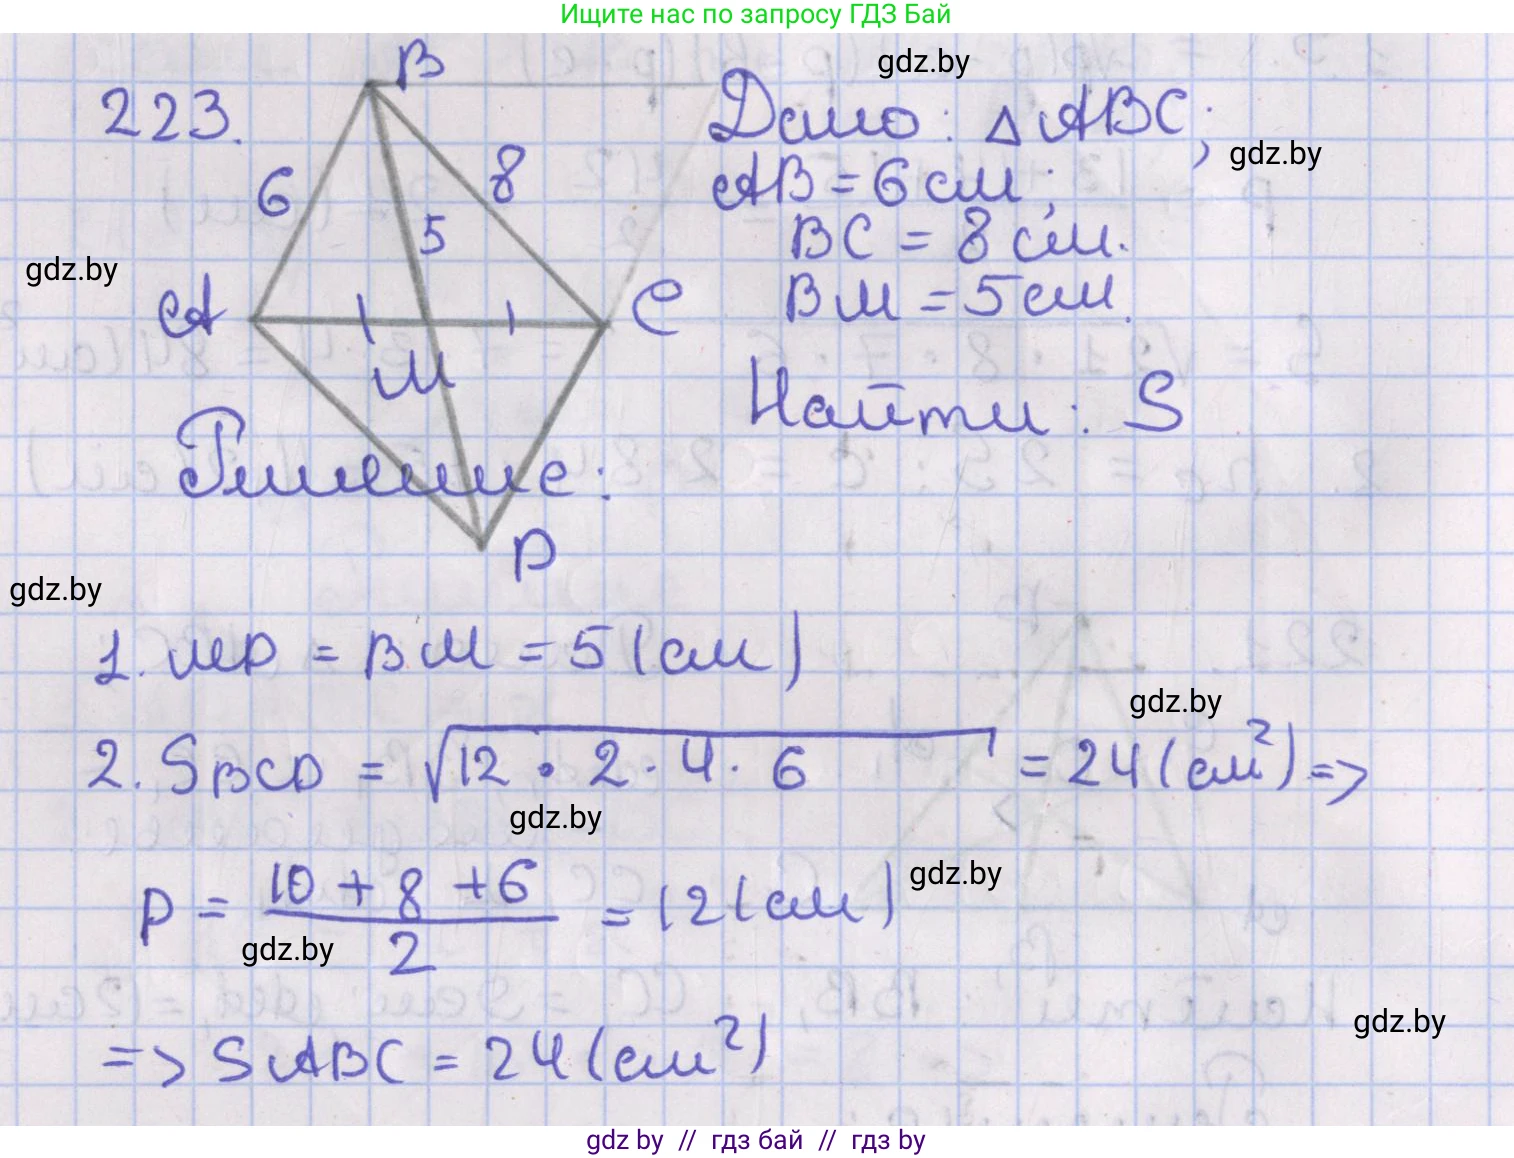 Ищите нас по запросу ГДЗ Бай
B
gdz.by
223.
Дано: △ABC;
gdz.by
6
8
AB = 6 см;
5
BC = 8 см.
gdz.by
A
C
BM = 5 см.
M
Найти: S
Решение:
D
gdz.by
1. MD = BM = 5 (см)
gdz.by
2. SBCD = √12 · 2 · 4 · 6 = 24 (см²) =>
gdz.by
p = 10 + 8 + 6 / 2 = 12 (см)
gdz.by
gdz.by
gdz.by
=> SABC = 24 (см²)
gdz by // гдз бай // гдз by